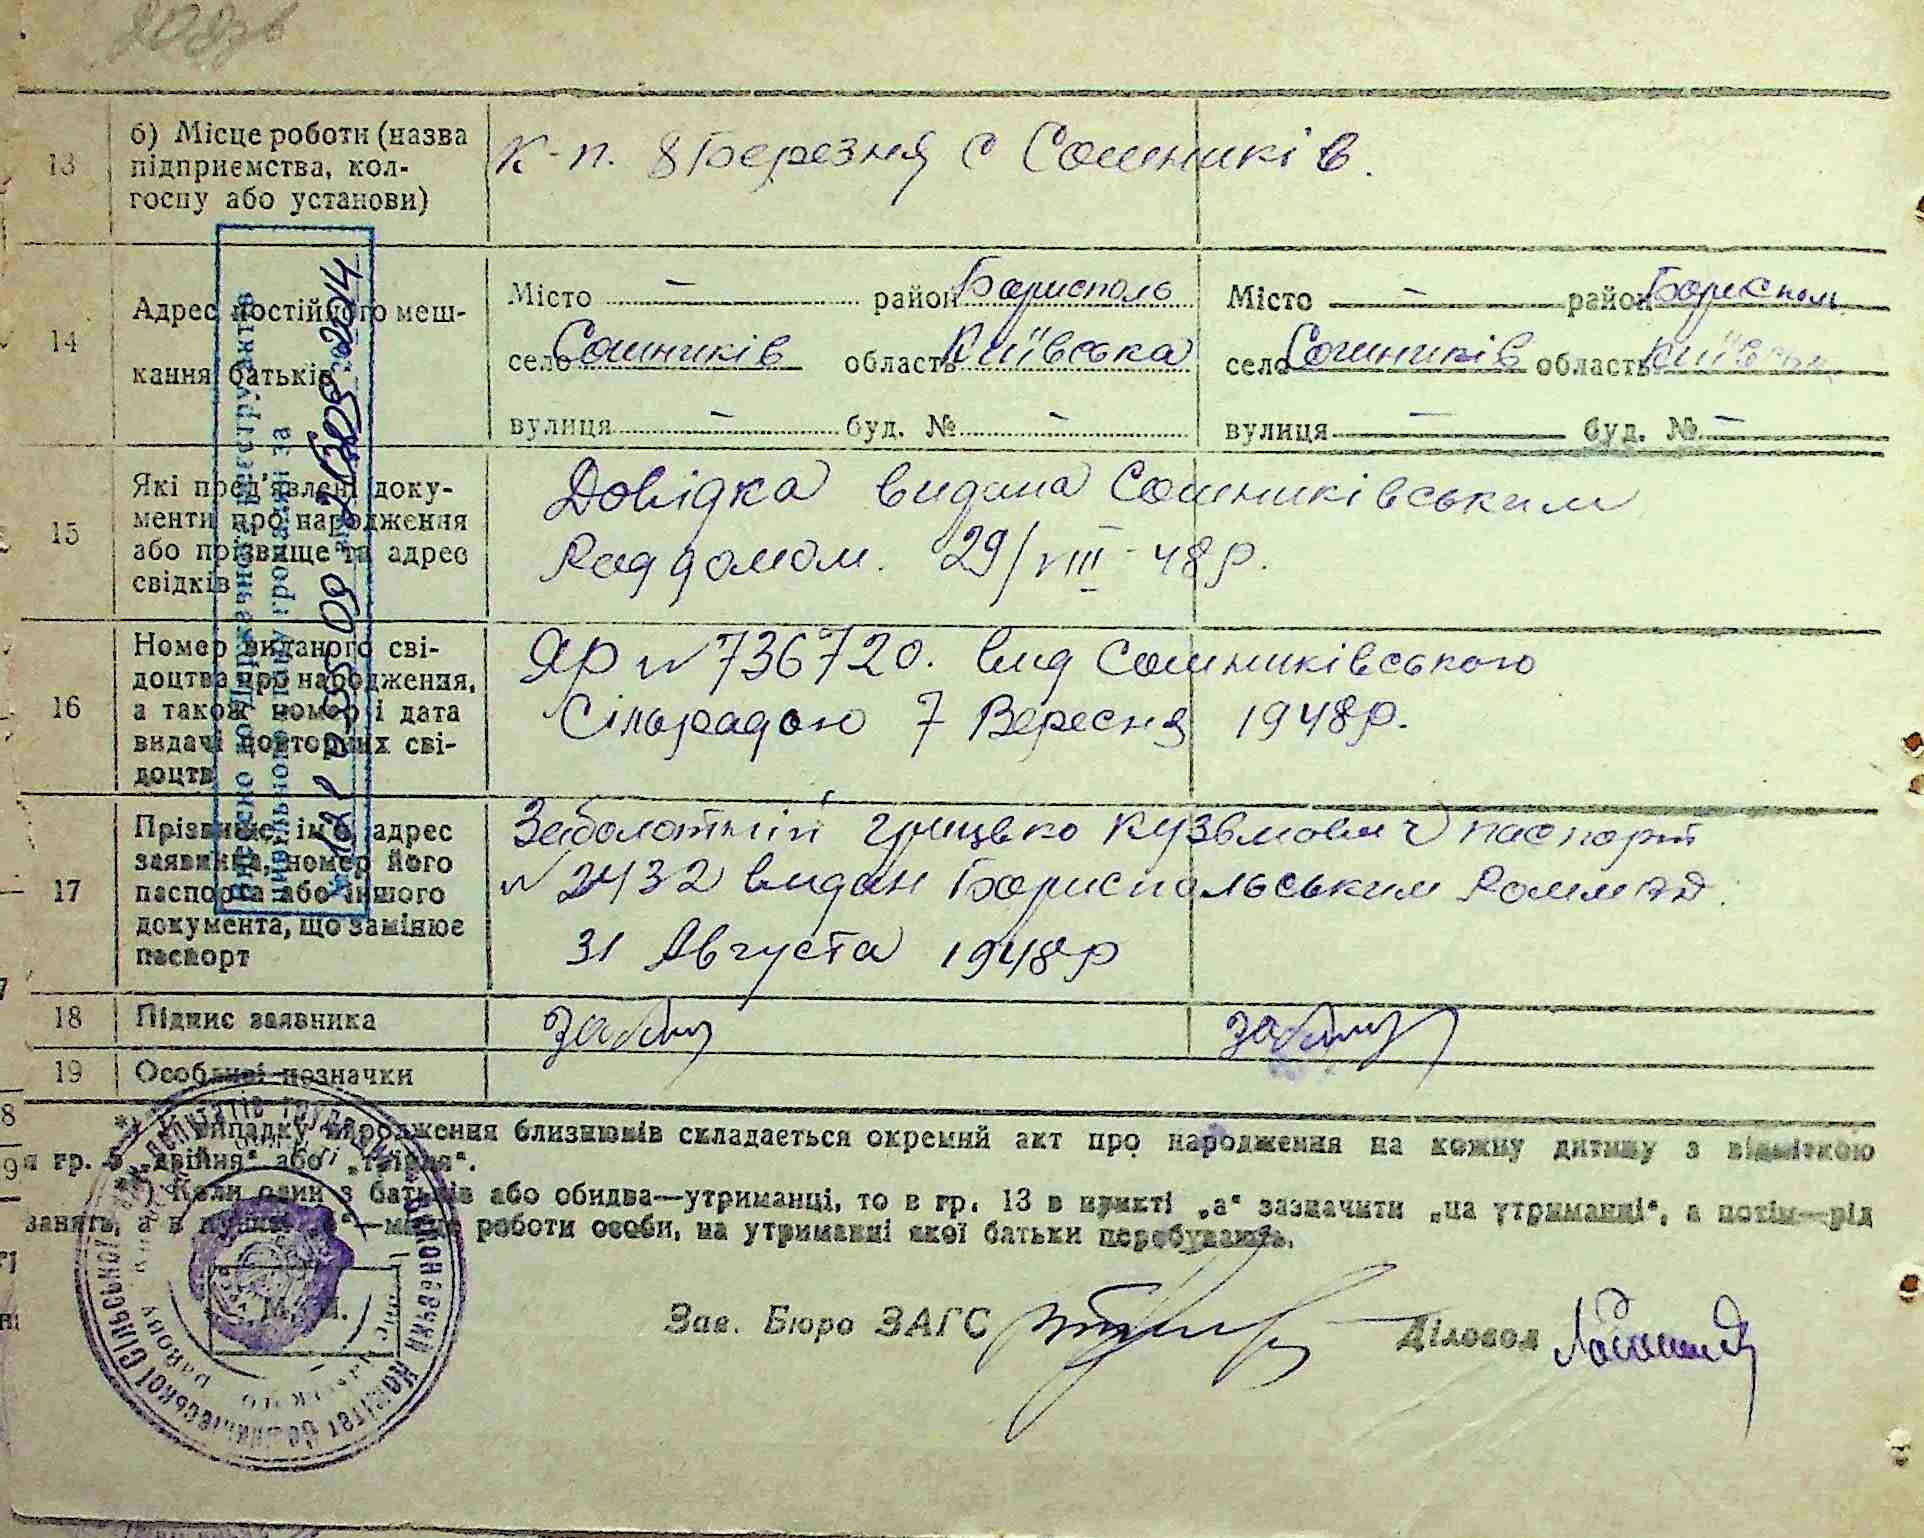 13
б) Місце роботи (назва
підприємства, кол-
госпу або установи)
к-п. 8 Березня с Сошників.
14
Адрес постійного меш-
кання батьків
Місто — район Бориспол
село Сошників область Київська
вулиця — буд. № —
Місто — район Бориспол
село Сошників область Київськ
вулиця — буд. № —
15
Які пред'явлені доку-
менти про народження
або прізвище та адрес
свідків
Довідка видана Сошниківським
Роддомом. 29/VIII-48р.
16
Номер виданого сві-
доцтва про народження,
а також номер і дата
видачі повторних сві-
доцтв
ЯР № 736720. вид Сошниківського
Сільрадою 7 Вересня 1948р.
17
Прізвище, ім'я, адрес
заявника, номер його
паспорта або іншого
документа, що замінює
паспорт
Заболотній Грицько Кузьмович паспорт
№ 2432 видан Бориспольським
31 Августа 1948р
18
Підпис заявника
19
Особливі позначки
*) У випадку народження близнюків складається окремий акт про народження на кожну дитину з відміткою
в гр. 5 „двійня" або „трійня".
**) Коли один з батьків або обидва—утриманці, то в гр. 13 в пункті „а" зазначити „на утриманні", а потім—рід
занять, а в пункті „б"—місце роботи особи, на утриманні якої батьки перебувають.
Зав. Бюро ЗАГС
Діловод
М. П.
внесено до Державного реєстру актів
цивільного стану громадян за